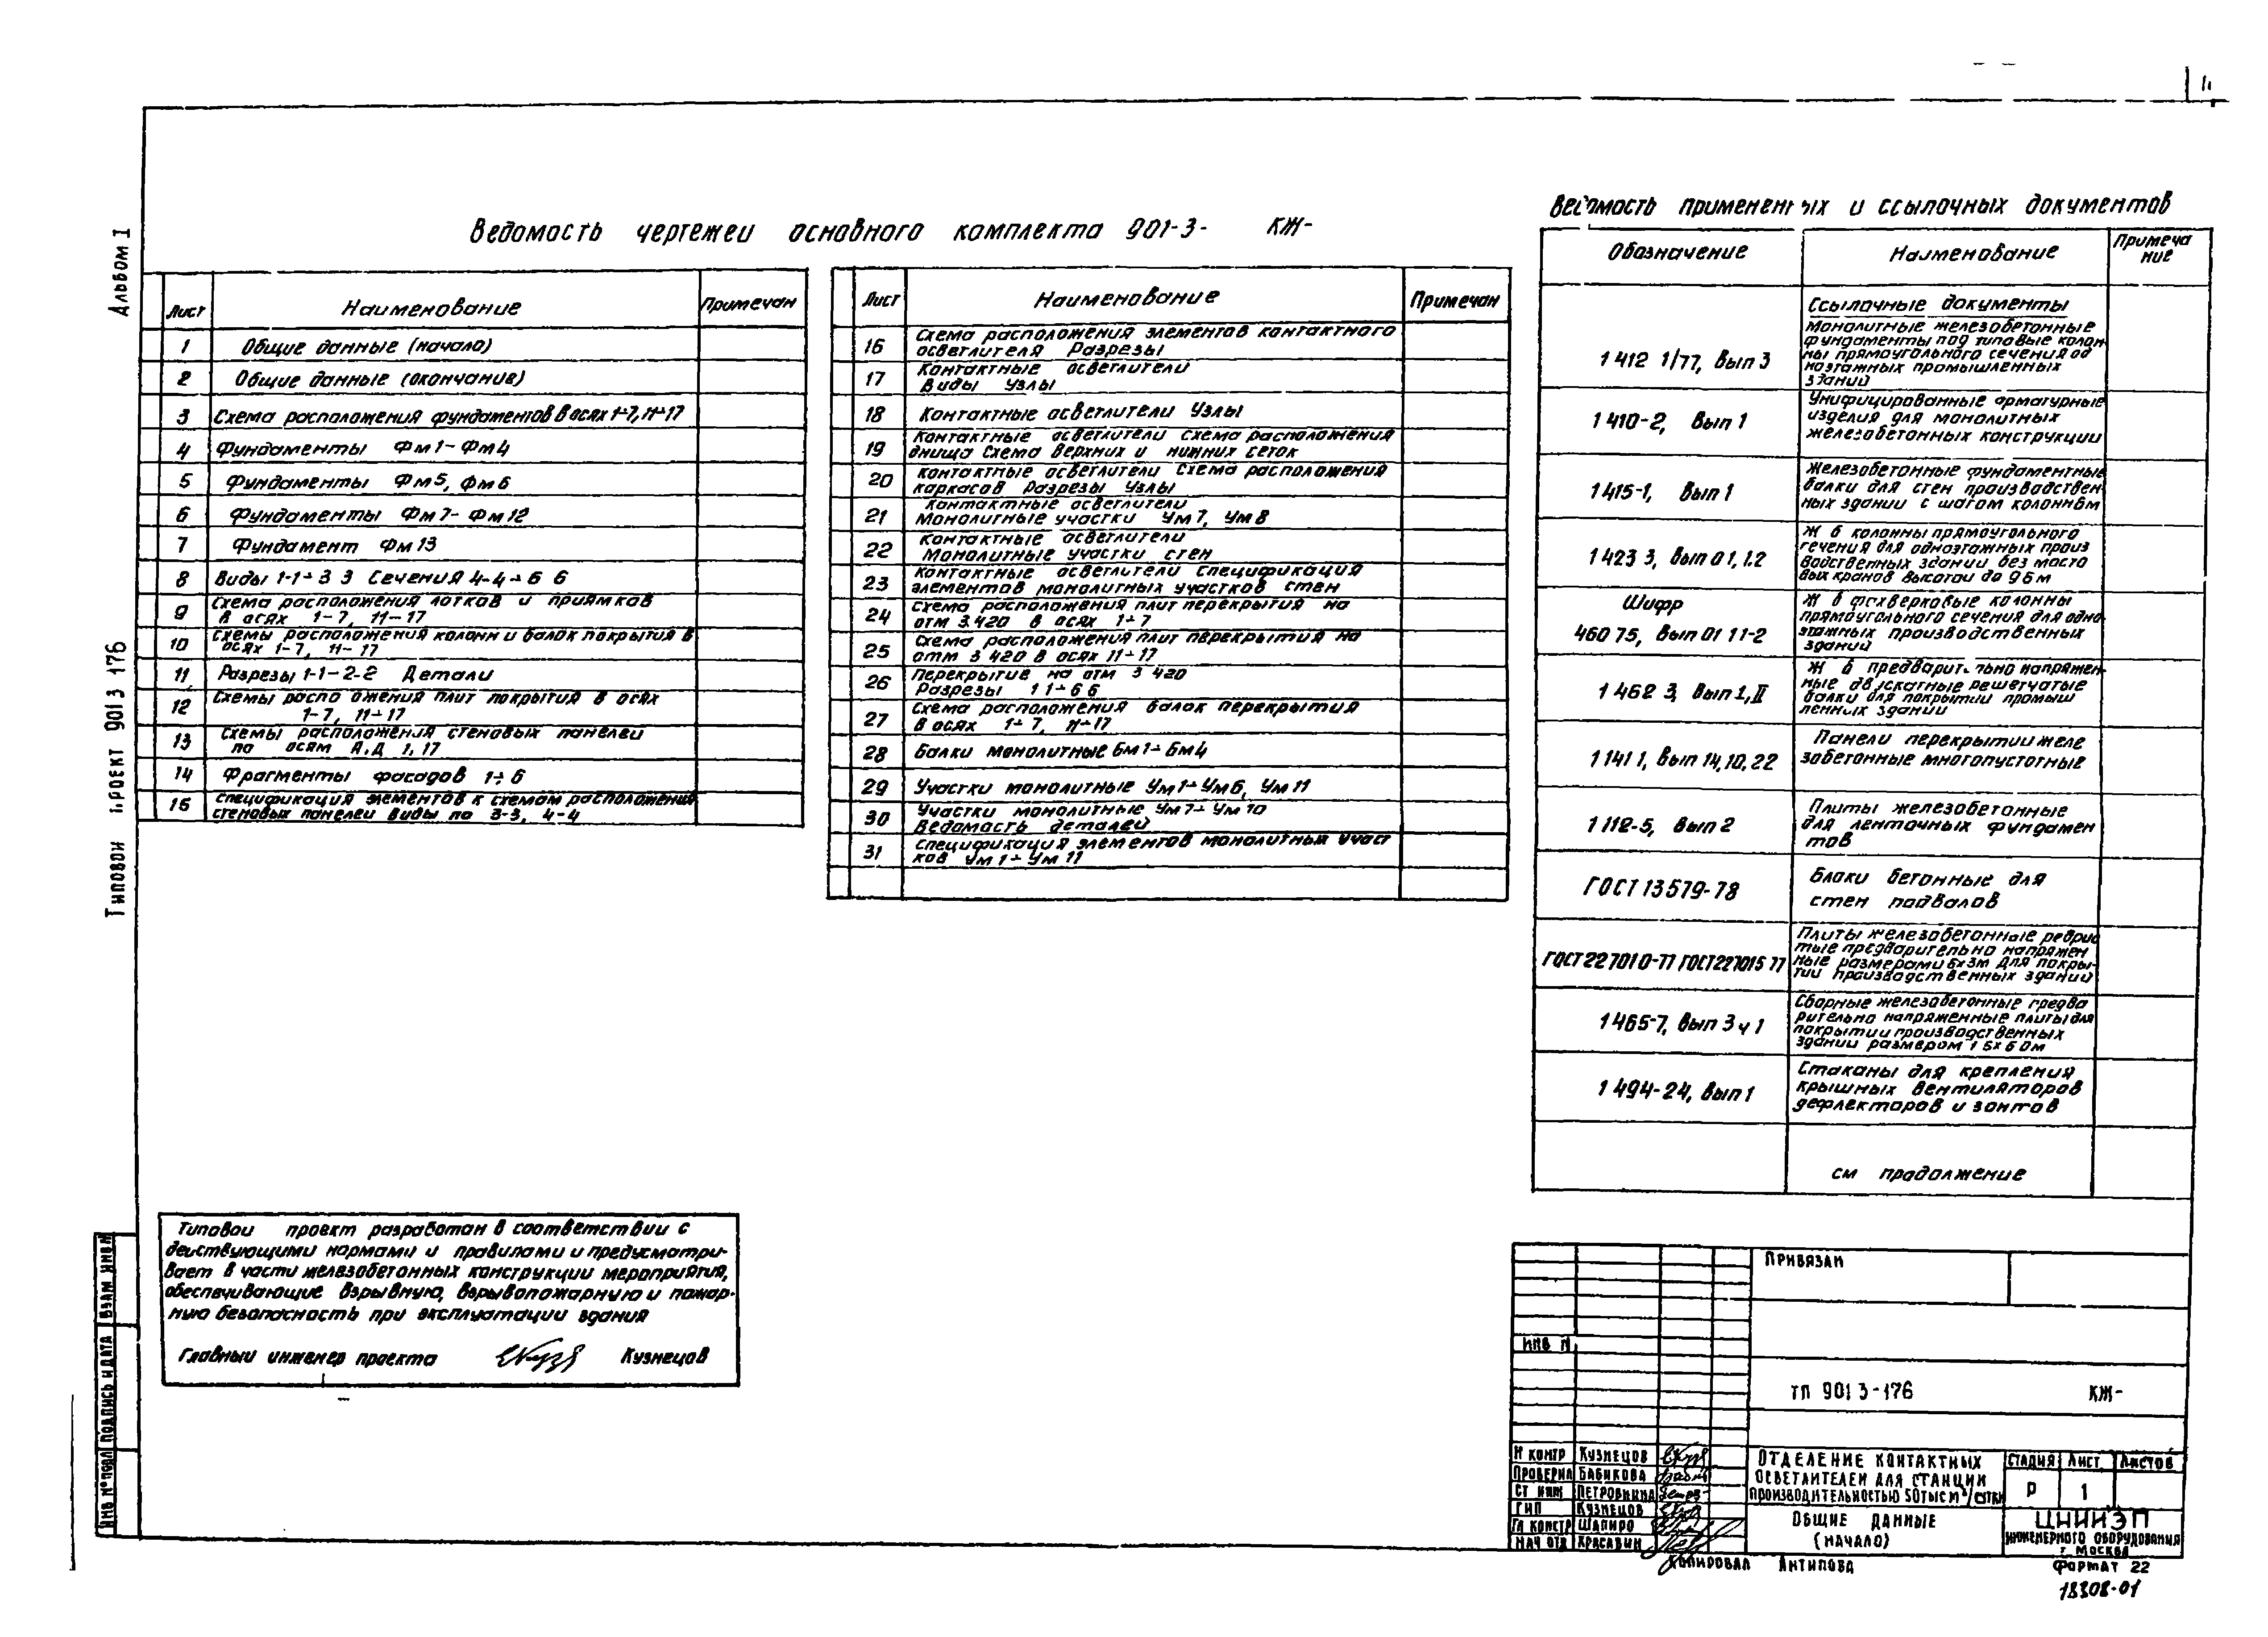 11
Альбом I
Типовой проект 901 3 176
Ведомость чертежеи основного комплекта 901-3- КЖ-
Лист Наименование Примечан
1 Общие данные (начало)
2 Общие данные (окончание)
3 Схема расположения фундаментов в осях 1÷7, 11÷17
4 Фундаменты Фм1-Фм4
5 Фундаменты Фм5, Фм6
6 Фундаменты Фм7-Фм12
7 Фундамент Фм13
8 Виды 1-1÷3 3 Сечения 4-4÷6 6
9 Схема расположения лотков и приямков
в осях 1-7, 11-17
10 Схемы расположения колонн и балок покрытия в
осях 1-7, 11-17
11 Разрезы 1-1-2-2 Детали
12 Схемы распо ожения плит покрытия в осях
1-7, 11÷17
13 Схемы расположения стеновых панелеи
по осям А,Д 1, 17
14 Фрагменты фасадов 1÷6
15 Спецификация элементов к схемам расположения
стеновых панелеи Виды по 3-3, 4-4
Лист Наименование Примечан
16 Схема расположения элементов контактного
осветлителя Разрезы
17 Контактные осветлители
Виды Узлы
18 Контактные осветлители Узлы
19 Контактные осветлители схема расположения
днища Схема верхних и нижних сеток
20 Контактные осветлители Схема расположения
каркасов Разрезы Узлы
21 Контактные осветлители
Монолитные участки Ум7, Ум8
22 Контактные осветлители
Монолитные участки стен
23 Контактные осветлители спецификация
элементов монолитных участков стен
24 Схема расположения плит перекрытия на
отм 3.420 в осях 1÷7
25 Схема расположения плит перекрытия на
отм 3 420 в осях 11÷17
26 Перекрытие на отм 3 420
Разрезы 1 1÷6 6
27 Схема расположения балок перекрытия
в осях 1÷7, 11÷17
28 Балки монолитные Бм1÷Бм4
29 Участки монолитные Ум1÷Ум6, Ум11
30 Участки монолитные Ум7÷Ум10
Ведомость деталей
31 Спецификация элементов монолитных участ
ков Ум1÷Ум11
Ведомость примененных и ссылочных документов
Обозначение Наименование Примеча
ние
Ссылочные документы
1 412 1/77, Вып 3 Монолитные железобетонные
фундаменты под типовые колон-
ны прямоугольного сечения од
ноэтажных промышленных
зданий
1 410-2, Вып 1 Унифицированные арматурные
изделия для монолитных
железобетонных конструкции
1 415-1, Вып 1 Железобетонные фундаментные
балки для стен производствен
ных здании с шагом колонн 6м
1 423 3, Вып 01, 1.2 Ж б колонны прямоугольного
сечения для одноэтажных произ
водственных здании без мосто
вых кранов высотои до 9 6 м
Шифр
460 75, Вып 01 11-2 Ж б фахверковые колонны
прямоугольного сечения для одно
этажных производственных
здании
1 462 3, Вып 1, II Ж б предварительно напряжен-
ные двускатные решетчатые
балки для покрытии промыш
ленных здании
1 141 1, Вып 14, 10, 22 Панели перекрытии желе
зобетонные многопустотные
1 112-5, Вып 2 Плиты железобетонные
для ленточных фундамен
тов
ГОСТ 13579-78 Блоки бетонные для
стен подвалов
ГОСТ 22 701 0-77 ГОСТ 22701 5 77 Плиты железобетонные ребрис
тые предварительно напряжен
ные размерами 6х3м для покры-
тии производственных здании
1 465-7, Вып 3 ч 1 Сборные железобетонные предва
рительно напряженные плиты для
покрытии производственных
здании размером 1 5х6 0м
1 494-24, Вып 1 Стаканы для крепления
крышных вентиляторов
дефлекторов и зонтов
см продолжение
Типовои проект разработан в соответствии с
деиствующими нормами и правилами и предусматри-
вает в части железобетонных конструкции мероприятия,
обеспечивающие взрывную, взрывопожарную и пожар-
ную безопасность при эксплуатации здания
Главныи инженер проекта Кузнецов
Взам инв №
Подпись и дата
Инв № подл
Привязан
Инв №
тп 901 3-176 КЖ-
Н контр Кузнецов
Проверил Бабикова
Ст инж Петровнина
ГИП Кузнецов
Гл констр Шапиро
Нач отд Красавин
Отделение контактных
осветлителеи для станции
производительностью 50тыс м³/сутки
Стадия Лист Листов
Р 1
Общие данные
(начало)
ЦНИИЭП
инженерного оборудования
г Москва
Копировал Антипова
Формат 22
18308-01